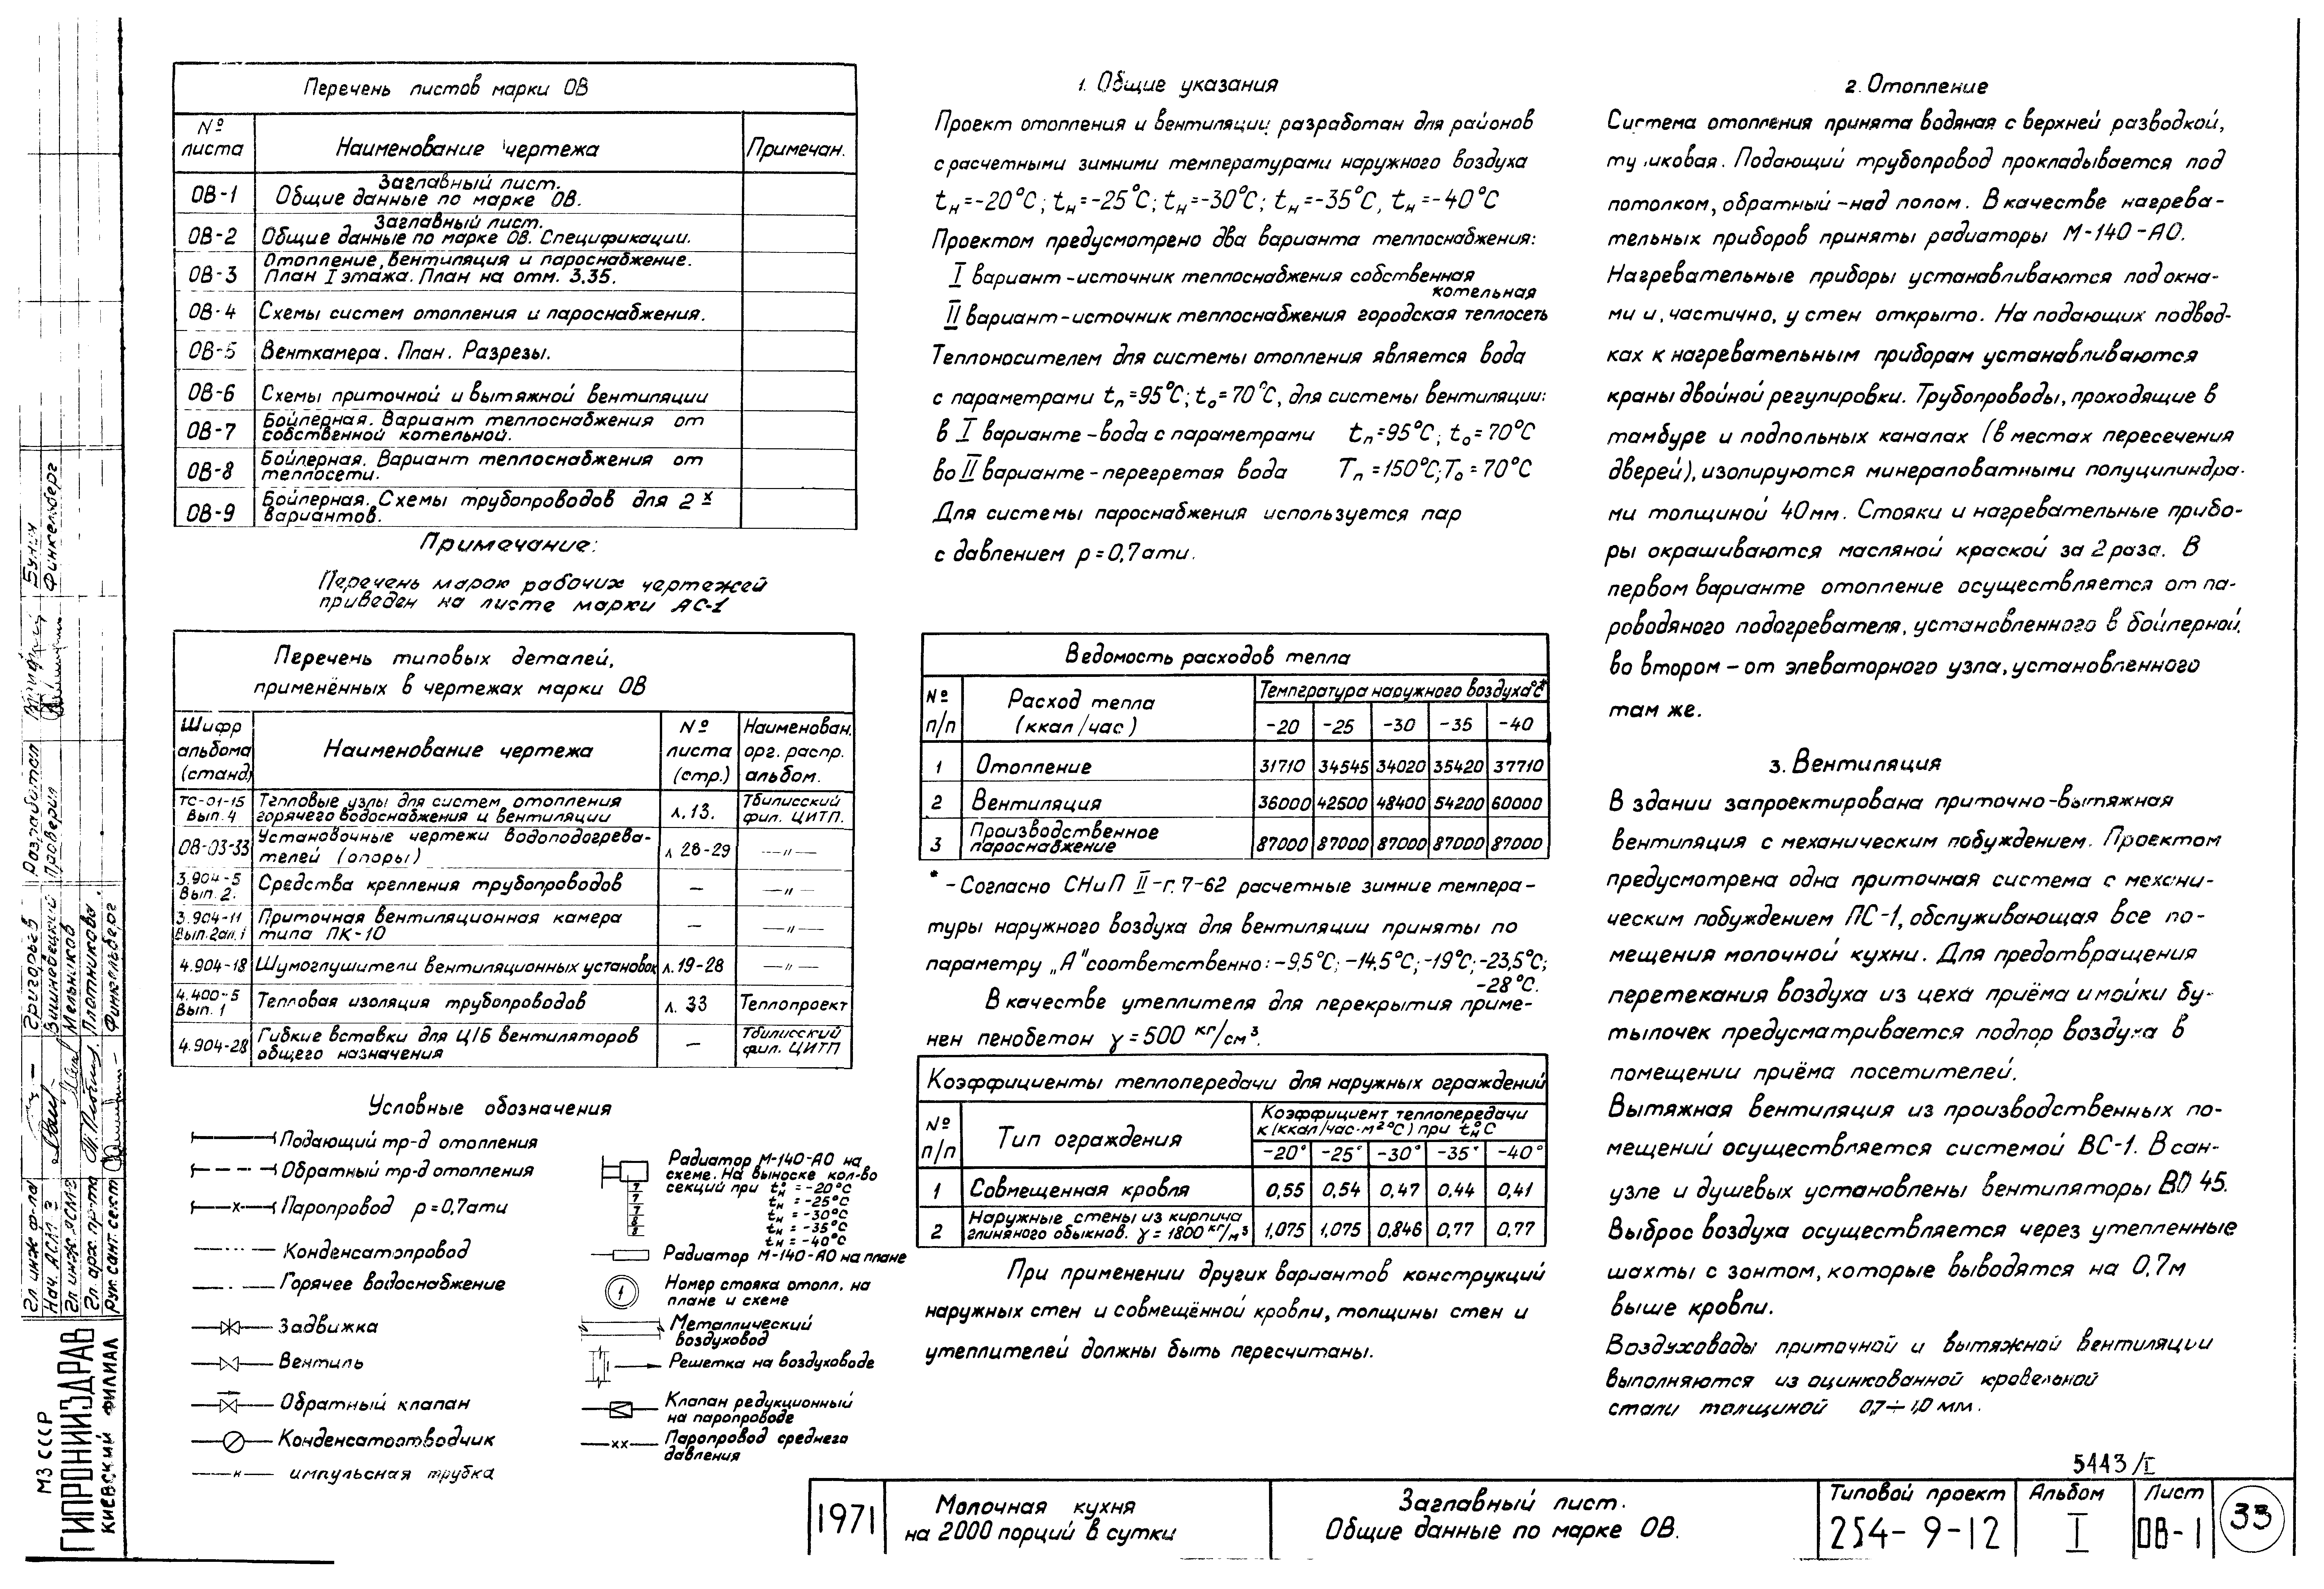 Перечень листов марки ОВ
№ листа
Наименование чертежа
Примечан.
ОВ-1
Заглавный лист.
Общие данные по марке ОВ.
ОВ-2
Заглавный лист.
Общие данные по марке ОВ. Спецификации.
ОВ-3
Отопление, вентиляция и пароснабжение.
План I этажа. План на отм. 3,35.
ОВ-4
Схемы систем отопления и пароснабжения.
ОВ-5
Венткамера. План. Разрезы.
ОВ-6
Схемы приточной и вытяжной вентиляции
ОВ-7
Бойлерная. Вариант теплоснабжения от
собственной котельной.
ОВ-8
Бойлерная. Вариант теплоснабжения от
теплосети.
ОВ-9
Бойлерная. Схемы трубопроводов для 2х
вариантов.
Примечание:
Перечень марок рабочих чертежей
приведен на листе марки АС-1
Перечень типовых деталей,
применённых в чертежах марки ОВ
Шифр
альбома
(станд)
Наименование чертежа
№
листа
(стр.)
Наименован.
орг. распр.
альбом.
ТС-01-15
Вып. 4
Тепловые узлы для систем отопления
горячего водоснабжения и вентиляции
л.13.
Тбилисский
фил. ЦИТП.
ОВ-03-33
Установочные чертежи водоподогрева-
телей (опоры)
л 28-29
—"—
3.904-5
Вып. 2.
Средства крепления трубопроводов
—
—"—
3.904-11
Вып.2ал.1
Приточная вентиляционная камера
типа ПК-10
—
—"—
4.904-18
Шумоглушители вентиляционных установок
л.19-28
—"—
4.400-5
Вып. 1
Тепловая изоляция трубопроводов
л. 33
Теплопроект
4.904-28
Гибкие вставки для Ц/Б вентиляторов
общего назначения
—
Тбилисский
фил. ЦИТП
Условные обозначения
Подающий тр-д отопления
Обратный тр-д отопления
Паропровод р=0,7ати
Конденсатопровод
Горячее водоснабжение
Задвижка
Вентиль
Обратный клапан
Конденсатоотводчик
импульсная трубка
Радиатор М-140-АО на
схеме. На выноске кол-во
секций при tн = -20°С
tн = -25°С
tн = -30°С
tн = -35°С
tн = -40°С
7
7
7
8
8
Радиатор М-140-АО на плане
1
Номер стояка отопл. на
плане и схеме
Металлический
воздуховод
Решетка на воздуховоде
Клапан редукционный
на паропроводе
Паропровод среднего
давления
1. Общие указания
Проект отопления и вентиляции разработан для районов
с расчетными зимними температурами наружного воздуха
tн=-20°С; tн=-25°С; tн=-30°С; tн=-35°С, tн=-40°С
Проектом предусмотрено два варианта теплоснабжения:
I вариант-источник теплоснабжения собственная
котельная
II вариант-источник теплоснабжения городская теплосеть
Теплоносителем для системы отопления является вода
с параметрами tп=95°С; tо=70°С, для системы вентиляции:
в I варианте-вода с параметрами tп=95°С; tо=70°С
во II варианте-перегретая вода Тп=150°С; То=70°С
Для системы пароснабжения используется пар
с давлением р=0,7ати.
Ведомость расходов тепла
№ п/п
Расход тепла
(ккал/час)
Температура наружного воздуха°С*
-20 -25 -30 -35 -40
1 Отопление 31710 34545 34020 35420 37710
2 Вентиляция 36000 42500 48400 54200 60000
3 Производственное
пароснабжение 87000 87000 87000 87000 87000
* -Согласно СНиП II-г.7-62 расчетные зимние темпера-
туры наружного воздуха для вентиляции приняты по
параметру „А" соответственно: -9,5°С; -14,5°С; -19°С; -23,5°С;
-28°С.
В качестве утеплителя для перекрытия приме-
нен пенобетон γ=500 кг/см³.
Коэффициенты теплопередачи для наружных ограждений
№ п/п
Тип ограждения
Коэффициент теплопередачи
к (ккал/час·м²°С) при tн°С
-20° -25° -30° -35° -40°
1 Совмещенная кровля 0,55 0,54 0,47 0,44 0,41
2 Наружные стены из кирпича
глиняного обыкнов. γ=1800 кг/м³ 1,075 1,075 0,846 0,77 0,77
При применении других вариантов конструкций
наружных стен и совмещённой кровли, толщины стен и
утеплителей должны быть пересчитаны.
2. Отопление
Система отопления принята водяная с верхней разводкой,
тупиковая. Подающий трубопровод прокладывается под
потолком, обратный-над полом. В качестве нагрева-
тельных приборов приняты радиаторы М-140-АО.
Нагревательные приборы устанавливаются под окна-
ми и, частично, у стен открыто. На подающих подвод-
ках к нагревательным приборам устанавливаются
краны двойной регулировки. Трубопроводы, проходящие в
тамбуре и подпольных каналах (в местах пересечения
дверей), изолируются минераловатными полуцилиндра-
ми толщиной 40мм. Стояки и нагревательные прибо-
ры окрашиваются масляной краской за 2 раза. В
первом варианте отопление осуществляется от па-
роводяного подогревателя, установленного в бойлерной,
во втором - от элеваторного узла, установленного
там же.
3. Вентиляция
В здании запроектирована приточно-вытяжная
вентиляция с механическим побуждением. Проектом
предусмотрена одна приточная система с механи-
ческим побуждением ПС-1, обслуживающая все по-
мещения молочной кухни. Для предотвращения
перетекания воздуха из цеха приёма и мойки бу-
тылочек предусматривается подпор воздуха в
помещении приёма посетителей.
Вытяжная вентиляция из производственных по-
мещений осуществляется системой ВС-1. В сан-
узле и душевых установлены вентиляторы ВО 45.
Выброс воздуха осуществляется через утепленные
шахты с зонтом, которые выводятся на 0,7м
выше кровли.
Воздуховоды приточной и вытяжной вентиляции
выполняются из оцинкованной кровельной
стали толщиной 0,7÷1,0 мм.
5443/I
1971
Молочная кухня
на 2000 порций в сутки
Заглавный лист.
Общие данные по марке ОВ.
Типовой проект
254-9-12
Альбом
I
Лист
ОВ-1
33
МЗ СССР
ГИПРОНИИЗДРАВ
КИЕВСКИЙ ФИЛИАЛ
Гл. инж ф-ла
Григорьев
Нач. АСЛ 3
Вишневецкий
Гл. инж. АСЛ-3
Мельников
Гл. арх. пр-та
Плотникова
Рук. сант. сект.
Финкельберг
Разработал
Бунич
Проверил
Финкельберг